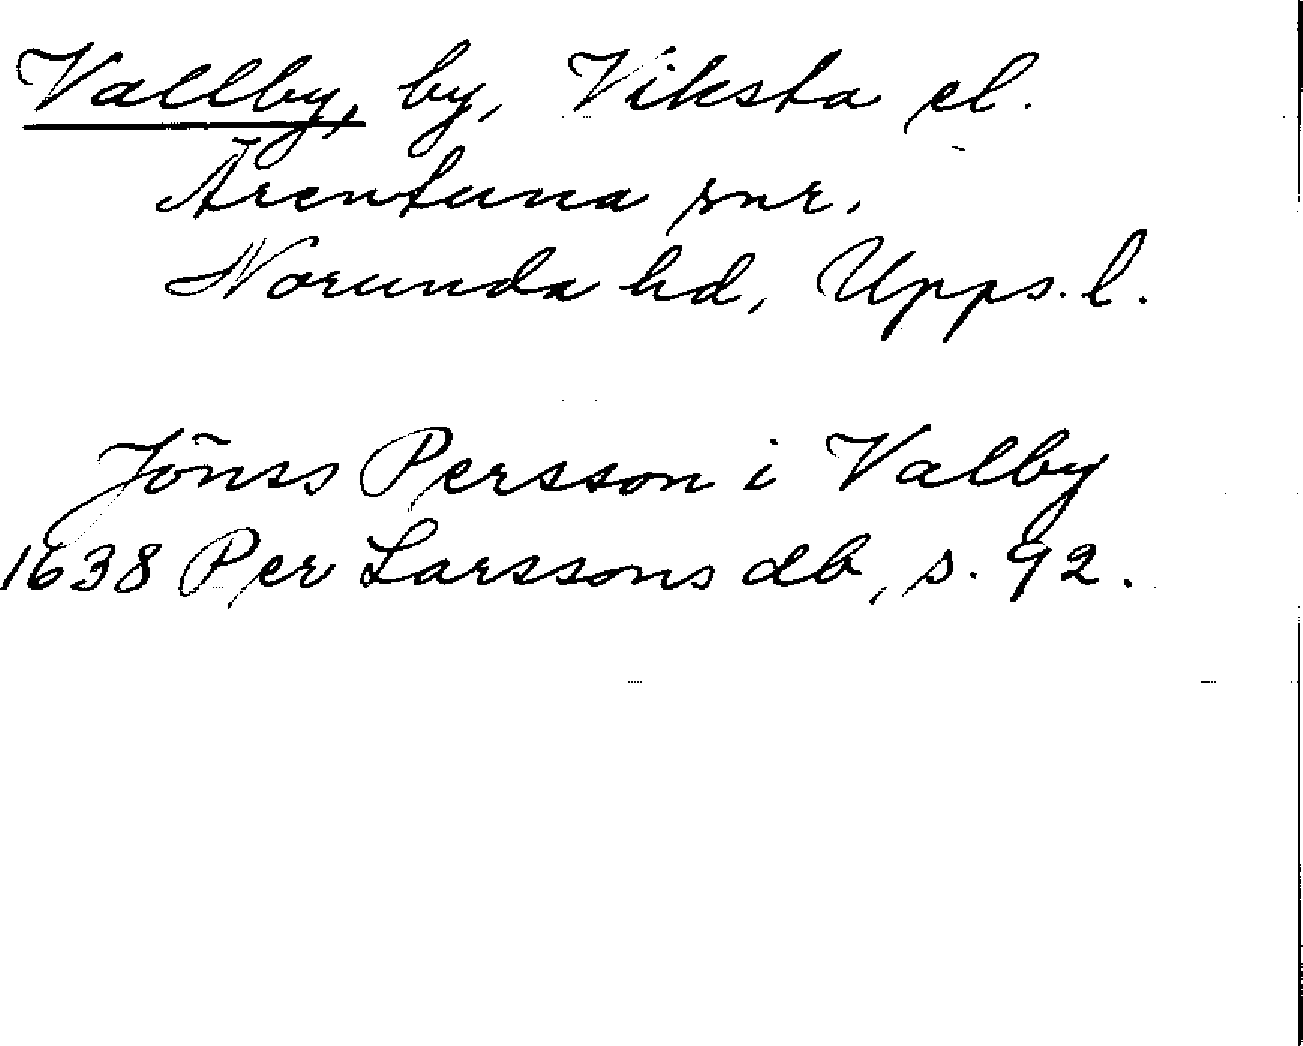 Vallby, by, Viksta el.
Ärentuna snr.
Norunda hd, Upps. l.
Jönss Persson i Valby
1638 Per Larssons db, s. 92.